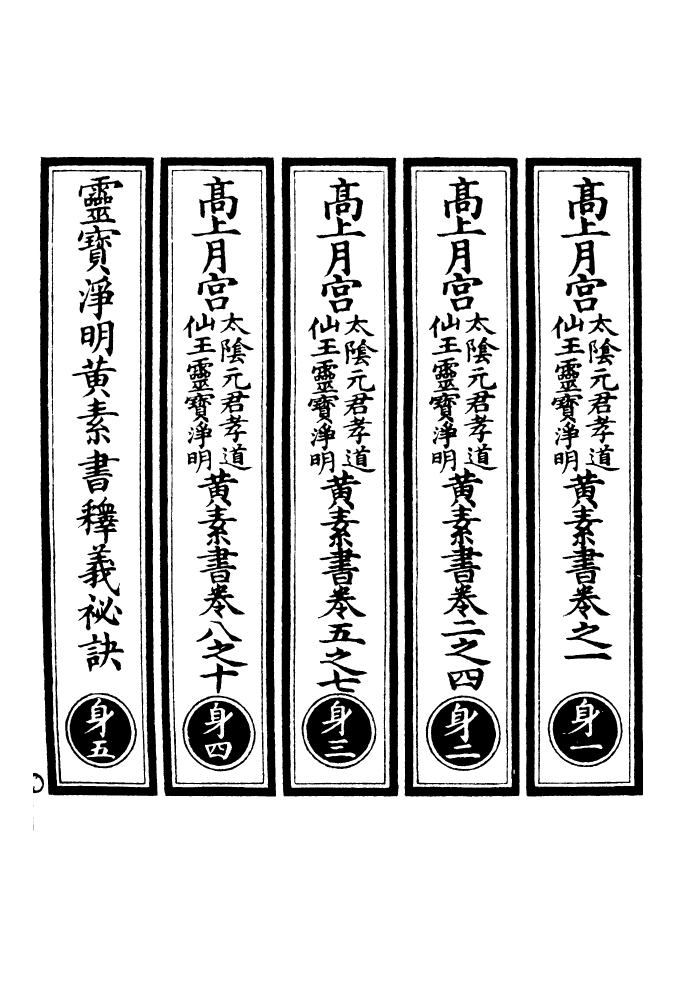 高上月宮太陰元君孝道仙王靈寶淨明黃素書卷之一
身一
高上月宮太陰元君孝道仙王靈寶淨明黃素書卷二之四
身二
高上月宮太陰元君孝道仙王靈寶淨明黃素書卷五之七
身三
高上月宮太陰元君孝道仙王靈寶淨明黃素書卷八之十
身四
靈寶淨明黃素書釋義祕訣
身五